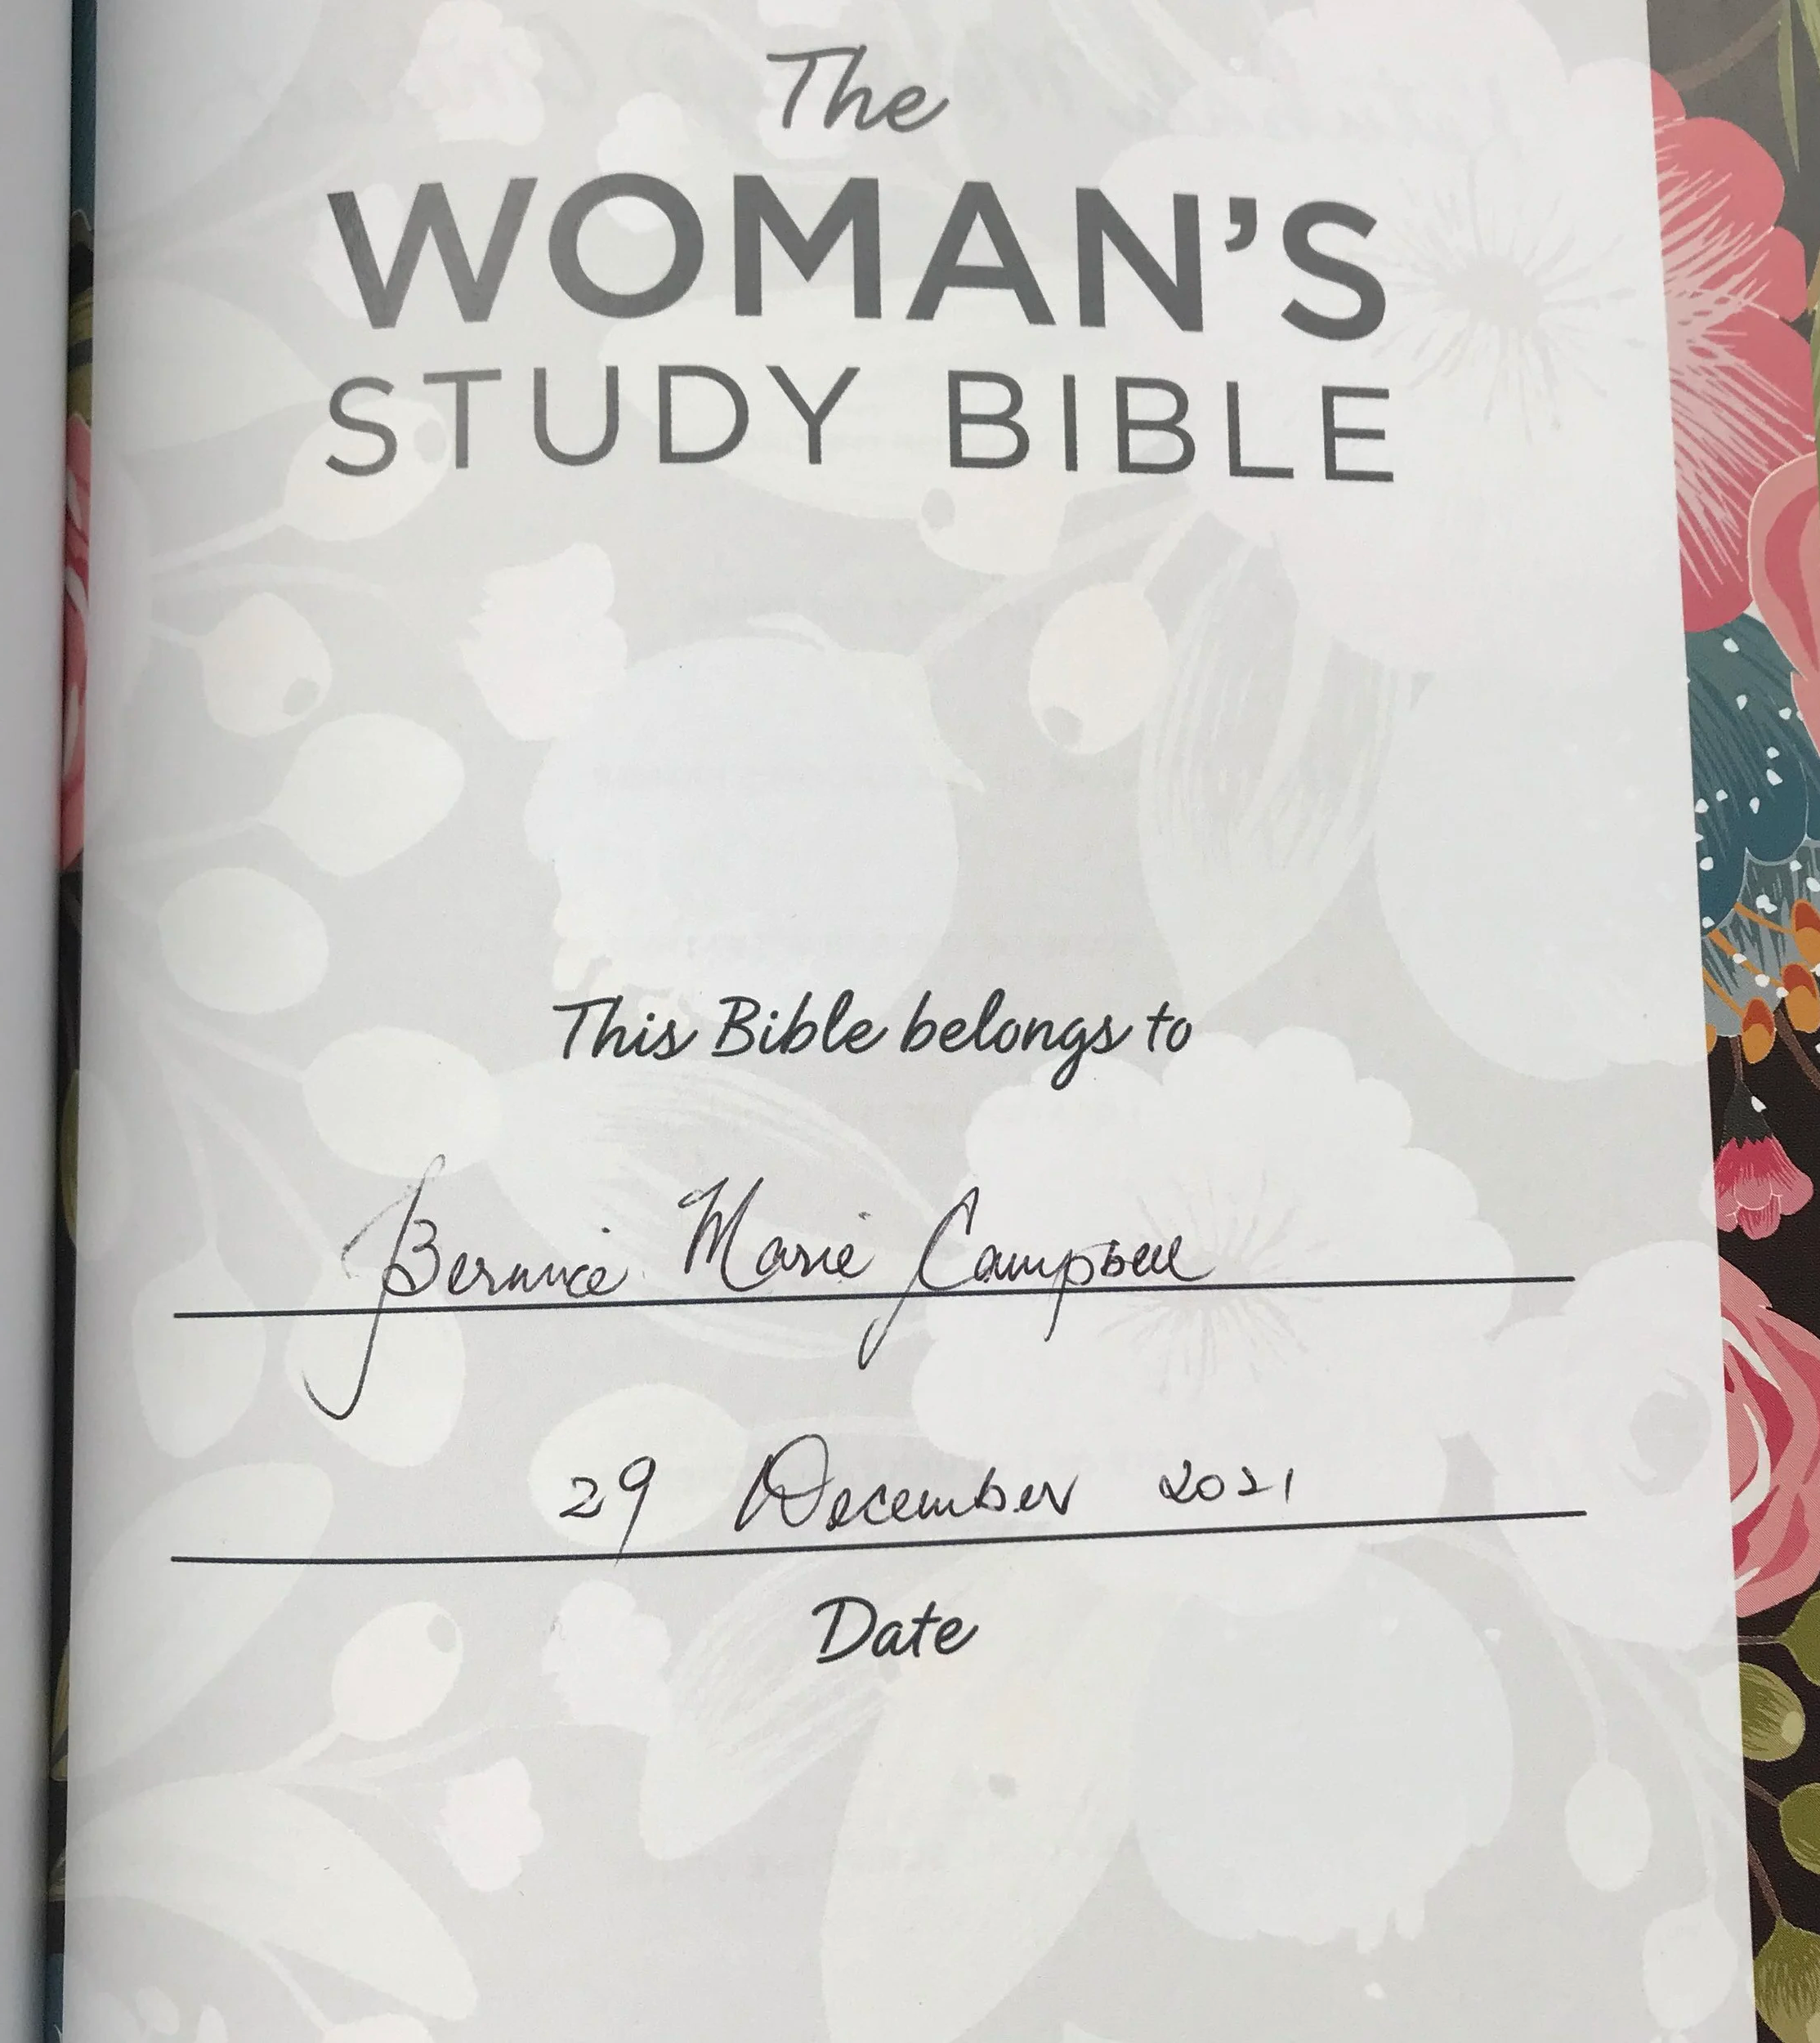 The
WOMAN'S
STUDY BIBLE
This Bible belongs to
Bernice Marie Campbell
29 December 2021
Date